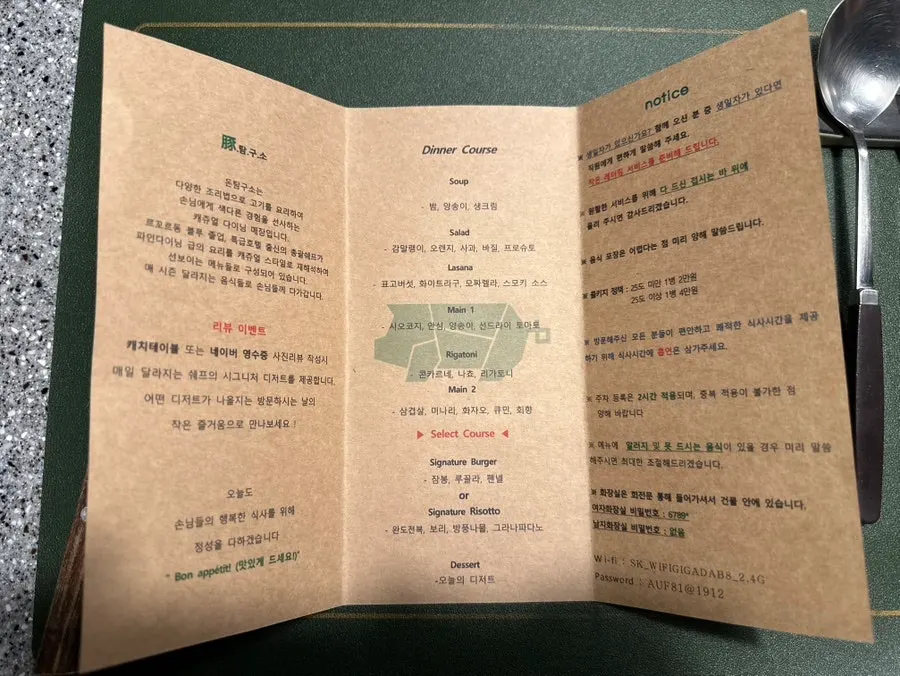 豚.탐.구.소
돈탐구소는
다양한 조리법으로 고기를 요리하여
손님에게 색다른 경험을 선사하는
캐쥬얼 다이닝 매장입니다.
르꼬르동 블루 졸업, 특급호텔 출신의 총괄쉐프가
파인다이닝 급의 요리를 캐쥬얼 스타일로 재해석하여
선보이는 메뉴들로 구성되어 있습니다.
매 시즌 달라지는 음식들로 손님들께 다가갑니다.
리뷰 이벤트
캐치테이블 또는 네이버 영수증 사진리뷰 작성시
매일 달라지는 쉐프의 시그니처 디저트를 제공합니다.
어떤 디저트가 나올지는 방문하시는 날의
작은 즐거움으로 만나보세요 !
오늘도
손님들의 행복한 식사를 위해
정성을 다하겠습니다
" Bon appétit! (맛있게 드세요!)"
Dinner Course
Soup
- 밤, 양송이, 생크림
Salad
- 감말랭이, 오렌지, 사과, 바질, 프로슈토
Lasana
- 표고버섯, 화이트라구, 모짜렐라, 스모키 소스
Main 1
- 시오코지, 안심, 양송이, 선드라이 토마토
Rigatoni
- 콘카르네, 나쵸, 리가토니
Main 2
- 삼겹살, 미나리, 화자오, 큐민, 회향
▶ Select Course ◀
Signature Burger
- 잠봉, 루꼴라, 펜넬
or
Signature Risotto
- 완도전복, 보리, 방풍나물, 그라나파다노
Dessert
-오늘의 디저트
notice
※ 생일자가 있으신가요? 함께 오신 분 중 생일자가 있다면
직원에게 편하게 말씀해 주세요.
작은 레터링 서비스를 준비해 드립니다.
※ 원활한 서비스를 위해 다 드신 접시는 바 위에
올려 주시면 감사드리겠습니다.
※ 음식 포장은 어렵다는 점 미리 양해 말씀드립니다.
※ 콜키지 정책 : 25도 미만 1병 2만원
25도 이상 1병 4만원
※ 방문해주신 모든 분들이 편안하고 쾌적한 식사시간을 제공
하기 위해 식사시간에 흡연은 삼가주세요.
※ 주차 등록은 2시간 적용되며, 중복 적용이 불가한 점
양해 바랍니다
※ 메뉴에 알러지 및 못 드시는 음식이 있을 경우 미리 말씀
해주시면 최대한 조절해드리겠습니다.
※ 화장실은 회전문 통해 들어가셔서 건물 안에 있습니다.
여자화장실 비밀번호 : 6789*
남자화장실 비밀번호 : 없음
Wi-fi : SK_WiFiGIGADAB8_2.4G
Password : AUF81@1912